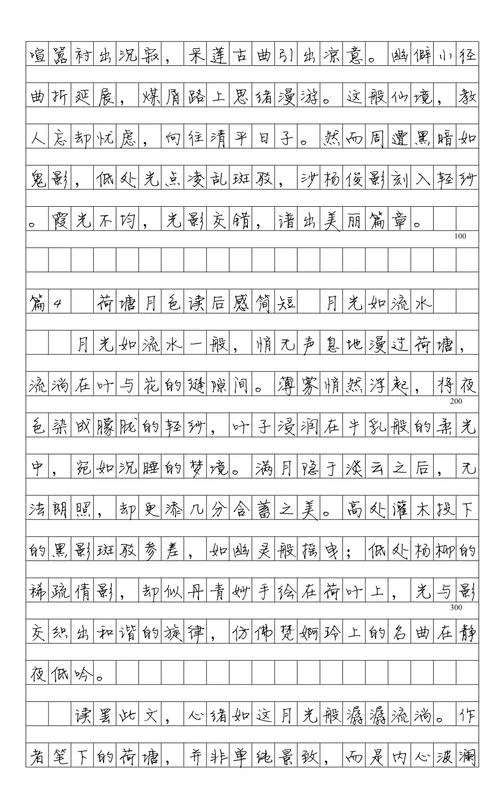 喧嚣衬出沉寂，采莲古曲引出凉意。幽僻小径
曲折延展，煤屑路上思绪漫游。这般仙境，教
人忘却忧虑，向往清平日子。然而周遭黑暗如
鬼影，低处光点凌乱斑驳，沙杨俊影刻入轻纱
。霞光不均，光影交错，谱出美丽篇章。
100
篇4 荷塘月色读后感简短 月光如流水
月光如流水一般，悄无声息地漫过荷塘，
流淌在叶与花的缝隙间。薄雾悄然浮起，将夜
200
色染成朦胧的轻纱，叶子浸润在牛乳般的柔光
中，宛如沉睡的梦境。满月隐于淡云之后，无
法朗照，却更添几分含蓄之美。高处灌木投下
的黑影斑驳参差，如幽灵般摇曳；低处杨柳的
稀疏倩影，却似丹青妙手绘在荷叶上，光与影
300
交织出和谐的旋律，仿佛梵婀玲上的名曲在静
夜低吟。
读罢此文，心绪如这月光般潺潺流淌。作
者笔下的荷塘，并非单纯景致，而是内心波澜